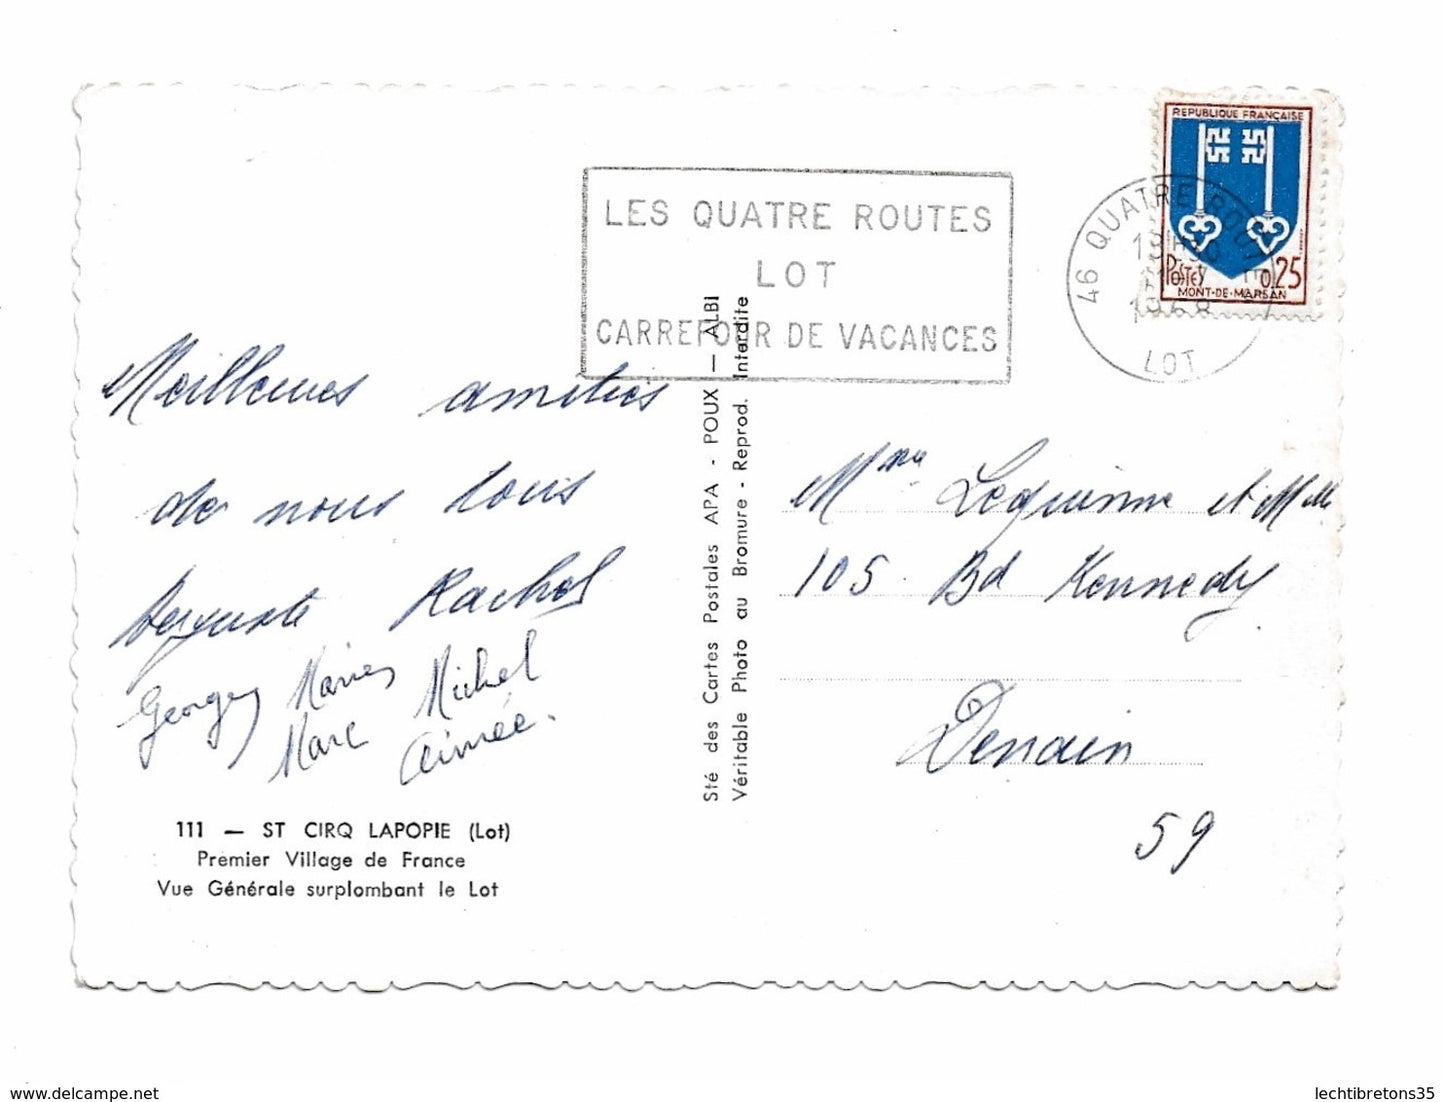 REPUBLIQUE FRANÇAISE
POSTES 0,25
MONT-DE-MARSAN
46 QUATRE ROUTES
1968
LOT
LES QUATRE ROUTES
LOT
CARREFOUR DE VACANCES
Meilleures amitiés
de nous tous
Auguste Rachel
Georges Maries Michel
Marc Aimée.
111 — ST CIRQ LAPOPIE (Lot)
Premier Village de France
Vue Générale surplombant le Lot
Sté des Cartes Postales APA - POUX — ALBI
Véritable Photo au Bromure - Reprod. Interdite
Mme Lequinne et Mlle
105. Bd Kennedy
Denain
59
lechtibretons35